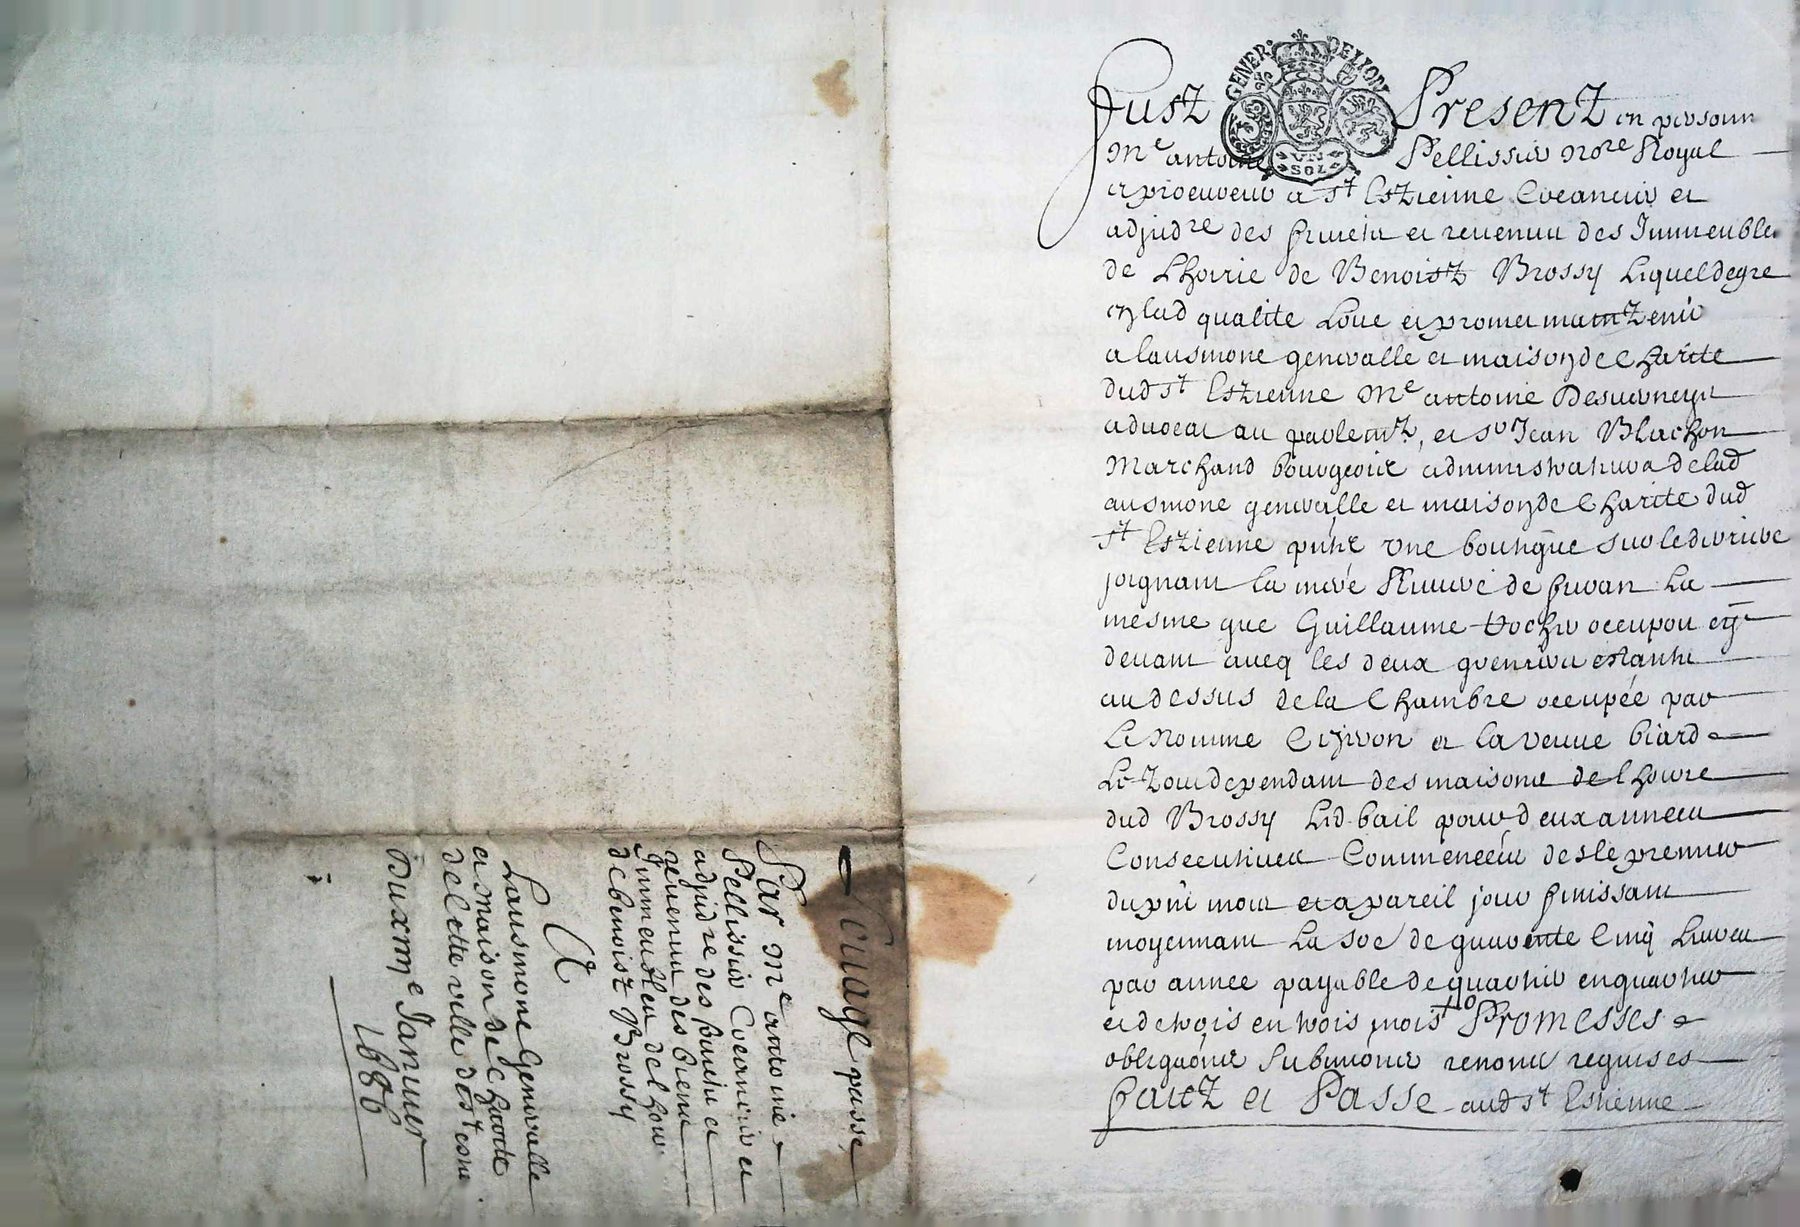 Louage passé
Par Me antoine
Pellissier Creancier et
adjudre des fruicts et
revenus des biens
Immeubles de lhoir
de benoist Brossy
A
Lausmone Generalle
et maison de Charite
de Cette ville de st estne
Du xme Januier
1686
Fust Present en personne
GENER. DE LYON
UN SOL
Me antoine Pellissier Nore Royal
et procureur a st Estienne Creancier et
adjudre des fruicts et revenus des Immeubles
de Lhoirie de Benoist Brossy Lequel de gre
en lad qualite Loue et promet maintenir
a lausmone generalle et maison de Charite
dud st Estienne Me antoine Desverneys
advocat au parlemt, et sr Jean Blachon
Marchand bourgeois administrateurs de lad
ausmone generalle et maison de Charite dud
st Estienne pnts une boutique sur le derriere
joignant la de furan La
mesme que Guillaume occupoit cy
devant avecq les deux greniers estants
au dessus de la Chambre occupée par
Le Nomme et la veuve biard
Le Tout dependant des maisons de lhoirie
dud Brossy Led bail pour deux annees
Consecutives Commencées des le premier
du pnt mois et a pareil jour finissant
moyennant La soe de quarente Cinq Livres
par annee payable de quartier en quartier
et de trois en trois mois Promesses
obligaons submions renonns requises
faict et Passe aud st Estienne